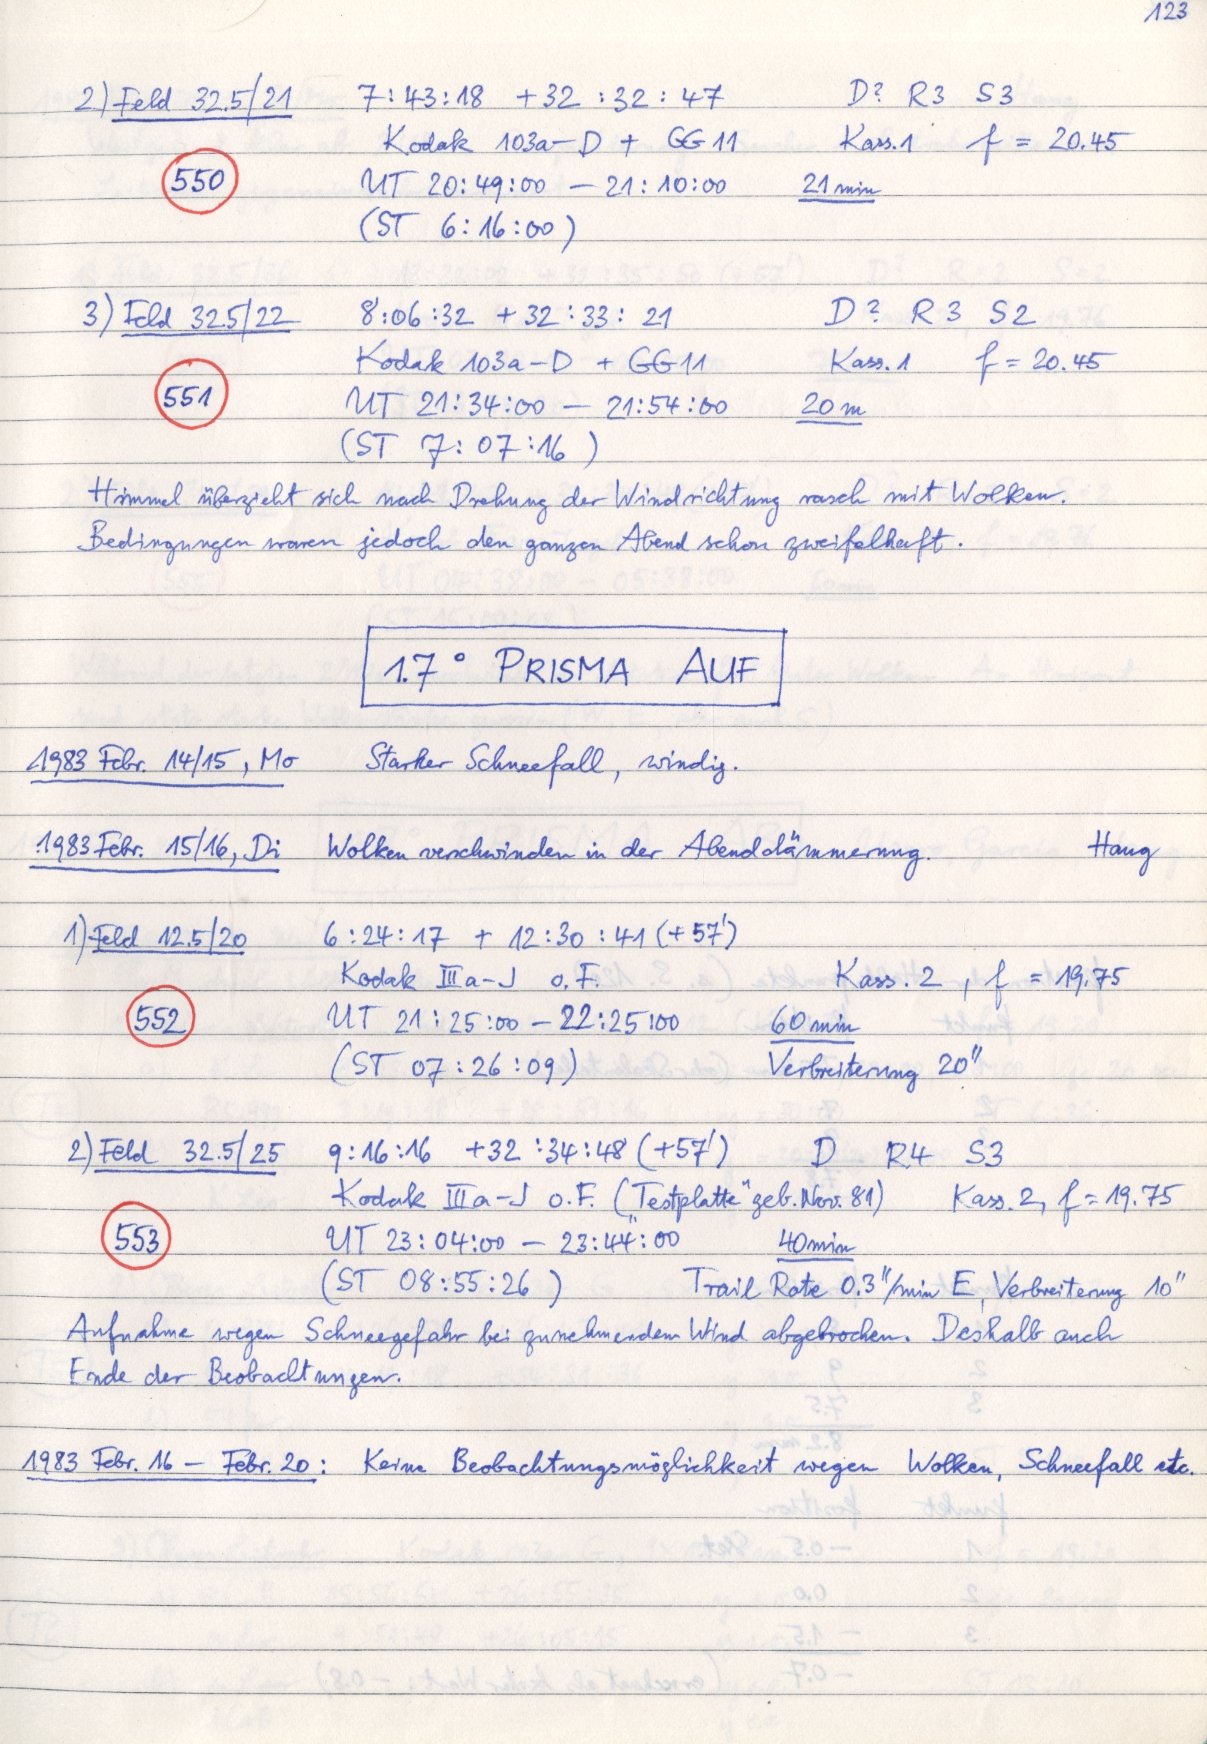 123
2) Feld 32.5/21 7:43:18 +32:32:47 D? R3 S3
Kodak 103a-D + GG11 Kass.1 f = 20.45
550 UT 20:49:00 – 21:10:00 21 min
(ST 6:16:00)
3) Feld 32.5/22 8:06:32 +32:33:21 D? R3 S2
Kodak 103a-D + GG11 Kass.1 f = 20.45
551 UT 21:34:00 – 21:54:00 20 m
(ST 7:07:16)
Himmel überzieht sich nach Drehung der Windrichtung rasch mit Wolken.
Bedingungen waren jedoch den ganzen Abend schon zweifelhaft.
1.7° PRISMA AUF
1983 Febr. 14/15, Mo Starker Schneefall, windig.
1983 Febr. 15/16, Di Wolken verschwinden in der Abenddämmerung. Haug
1) Feld 12.5/20 6:24:17 + 12:30:41 (+57')
Kodak IIIa-J o.F. Kass. 2, f = 19.75
552 UT 21:25:00 – 22:25:00 60 min
(ST 07:26:09) Verbreiterung 20"
2) Feld 32.5/25 9:16:16 +32:34:48 (+57') D R4 S3
Kodak IIIa-J o.F. („Testplatte" geb. Nov. 81) Kass. 2, f = 19.75
553 UT 23:04:00 – 23:44:00 40 min
(ST 08:55:26) Trail Rate 0.3"/min E, Verbreiterung 10"
Aufnahme wegen Schneegefahr bei zunehmendem Wind abgebrochen. Deshalb auch
Ende der Beobachtungen.
1983 Febr. 16 – Febr. 20: Keine Beobachtungsmöglichkeit wegen Wolken, Schneefall etc.